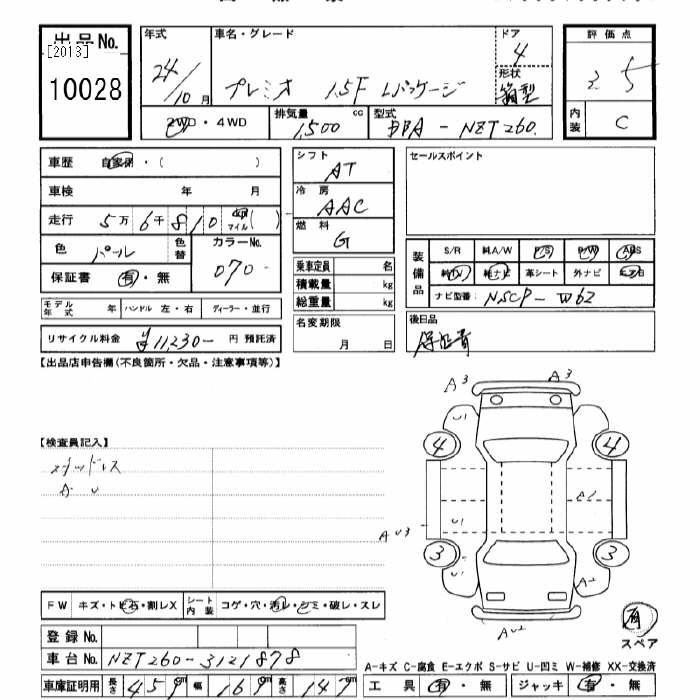 出品No.
[2013]
10028
年式
24/10月
車名・グレード
プレミオ 1.5F Lパッケージ
ドア
4
形状
箱型
評価点
3.5
内装
C
2WD・4WD
排気量 cc
1,500
型式
DBA-NZT260.
車歴 自家用・( )
車検 年 月
走行 5万6千810 km マイル( )
色 パール
色替
カラーNo.
070-
保証書 有・無
モデル年式 年
ハンドル 左・右
ディーラー・並行
リサイクル料金 ¥11,230- 円 預託済
シフト
AT
冷房
AAC
燃料
G
乗車定員 名
積載量 kg
総重量 kg
名変期限
月 日
セールスポイント
装備品
S/R 純A/W P/S P/W ABS
純TV 純ナビ 革シート 外ナビ
ナビ型番: NSCP-W62
後日品
保証書
【出品店申告欄(不良箇所・欠品・注意事項等)】
【検査員記入】
スタッドレス
A U
A3 A3
U1
4 4
U1
AU3
3 3
U1
A2
AU2
有
スペア
FW キズ・トビ石・割レX
シート内装 コゲ・穴・汚レ・シミ・破レ・スレ
登録No.
車台No. NZT260-3121878
車庫証明用 長さ 459cm 幅 169cm 高さ 147cm
A-キズ C-腐食 E-エクボ S-サビ U-凹ミ W-補修 XX-交換済
工具 有・無 ジャッキ 有・無